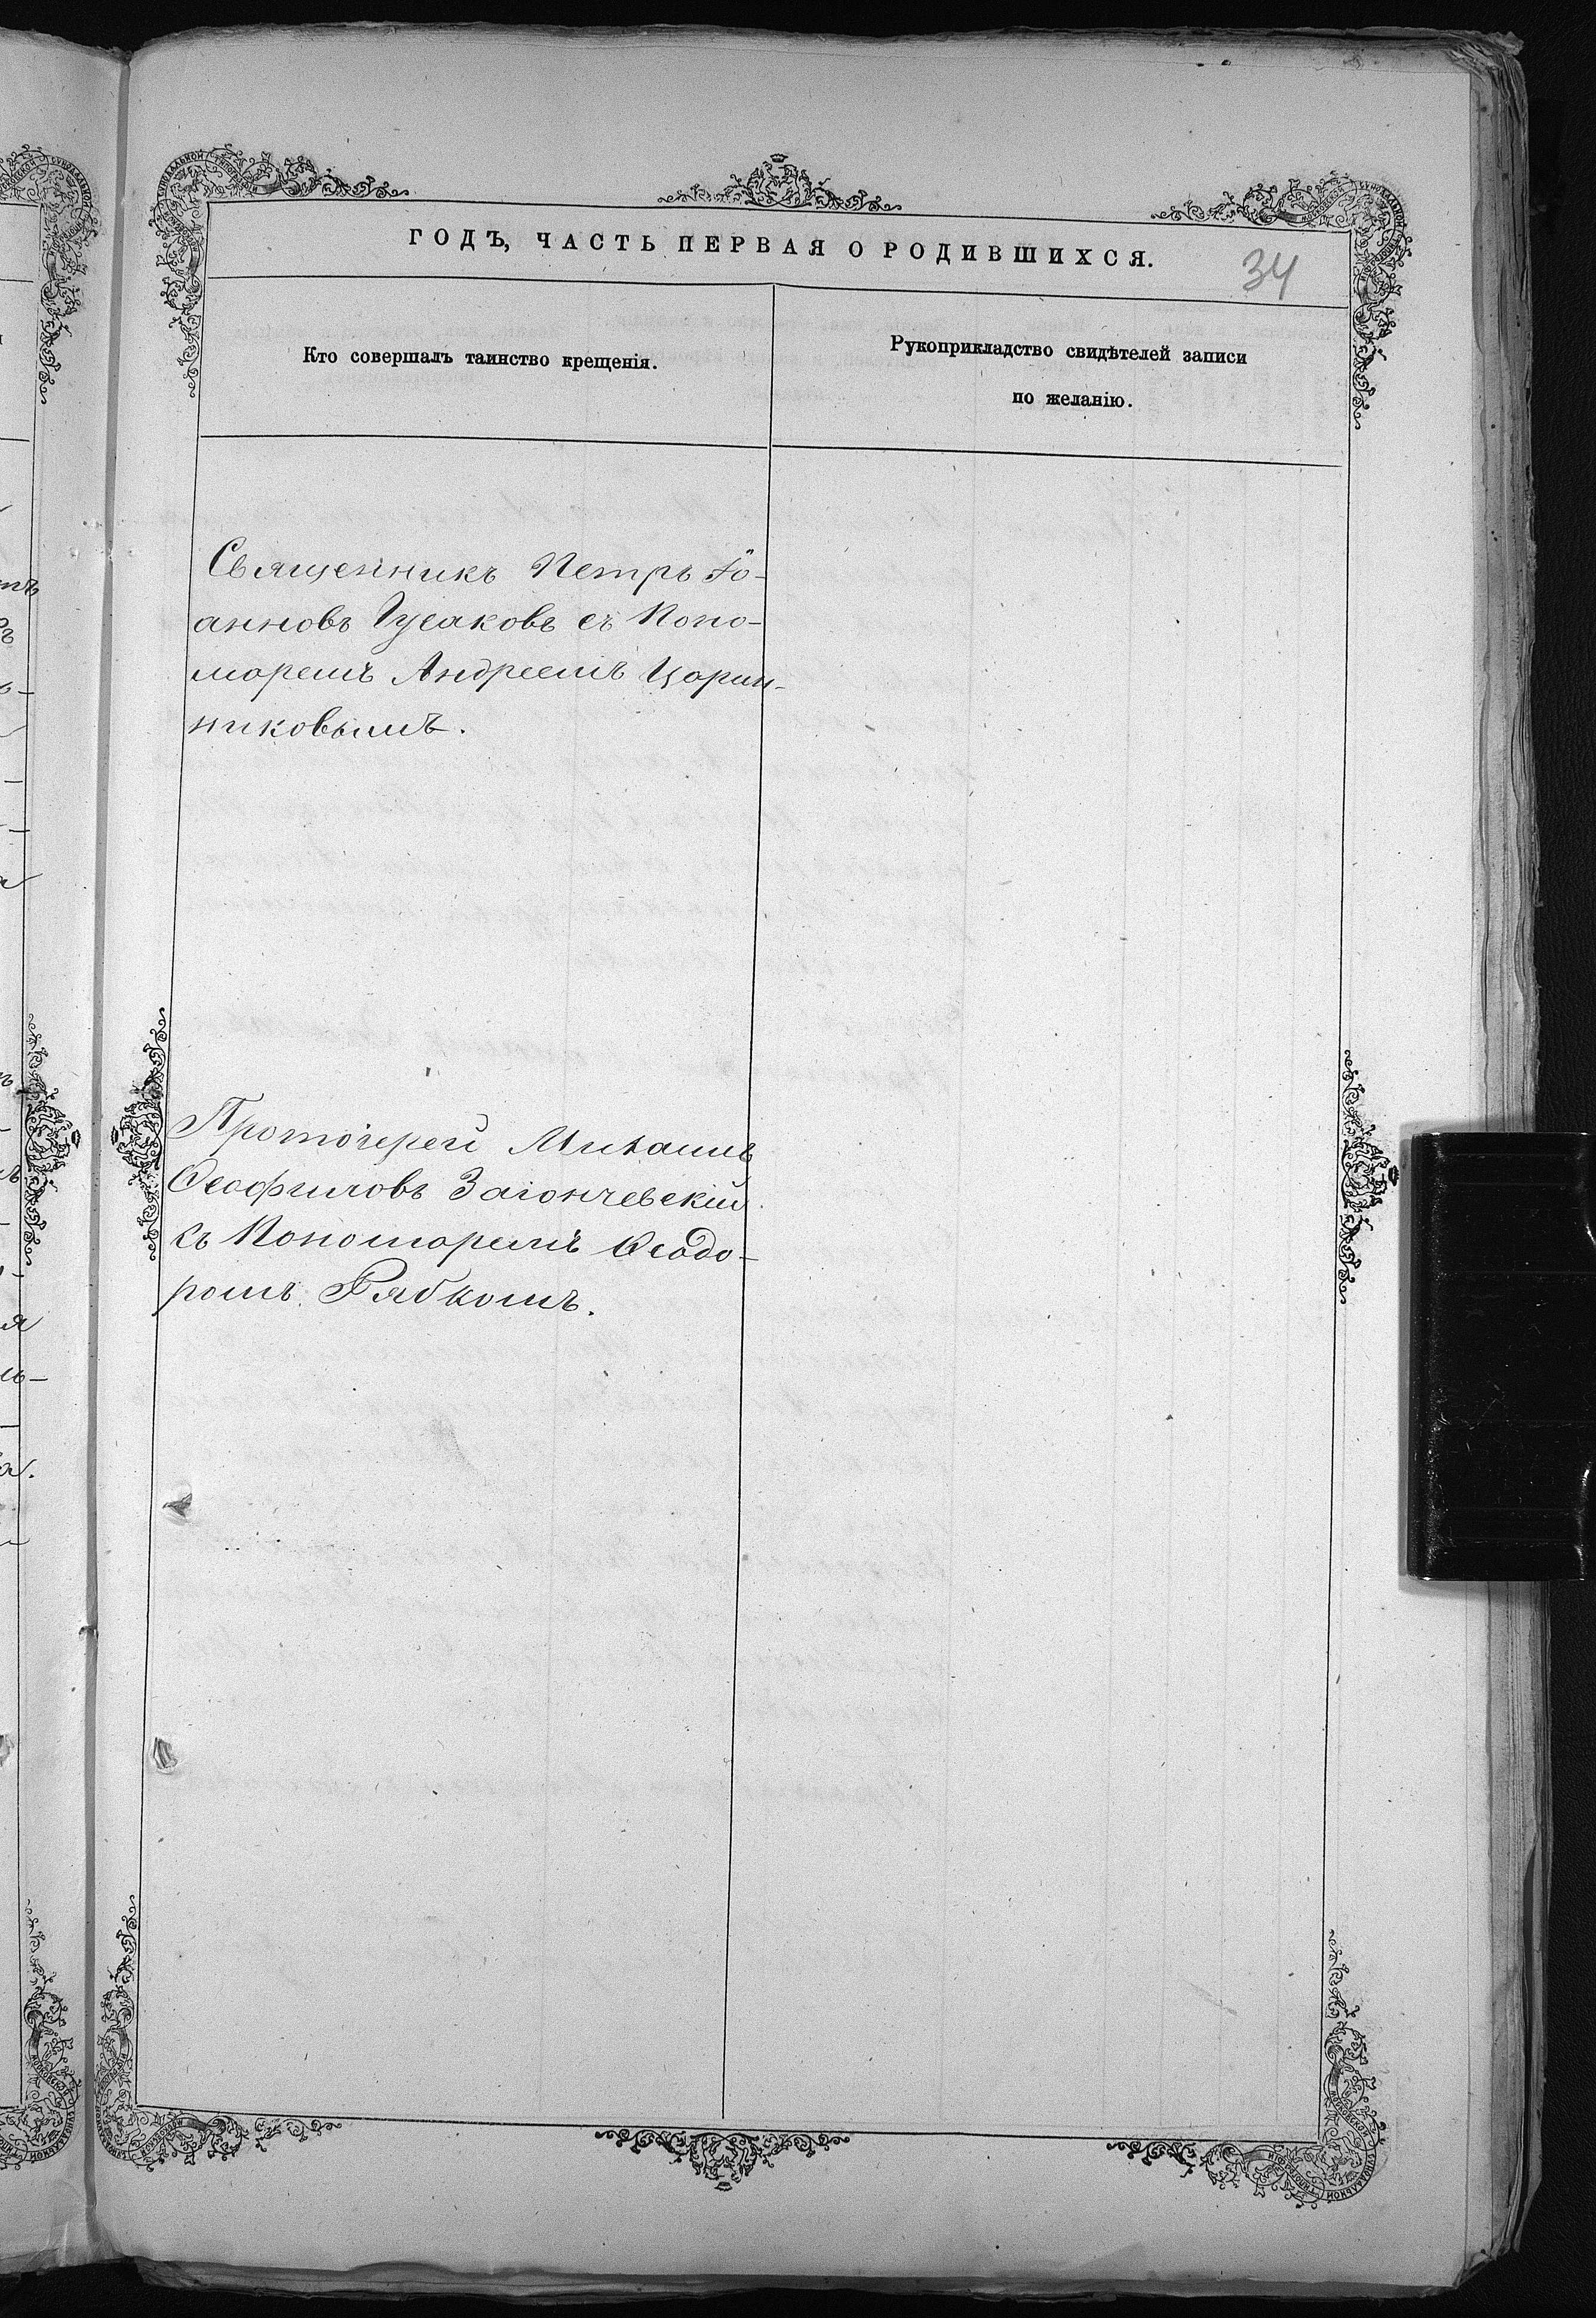 ГОДЪ, ЧАСТЬ ПЕРВАЯ О РОДИВШИХСЯ.
34
Кто совершалъ таинство крещенія.
Рукоприкладство свидѣтелей записи
по желанію.
Священникъ Петръ Іо-
анновъ Гусаковъ съ Поно-
маремъ Андреемъ Царин-
никовымъ.
Протоіерей Михаилъ
Ѳеофиловъ Загончевскій
съ Пономаремъ Ѳеодо-
ромъ Рябкомъ.